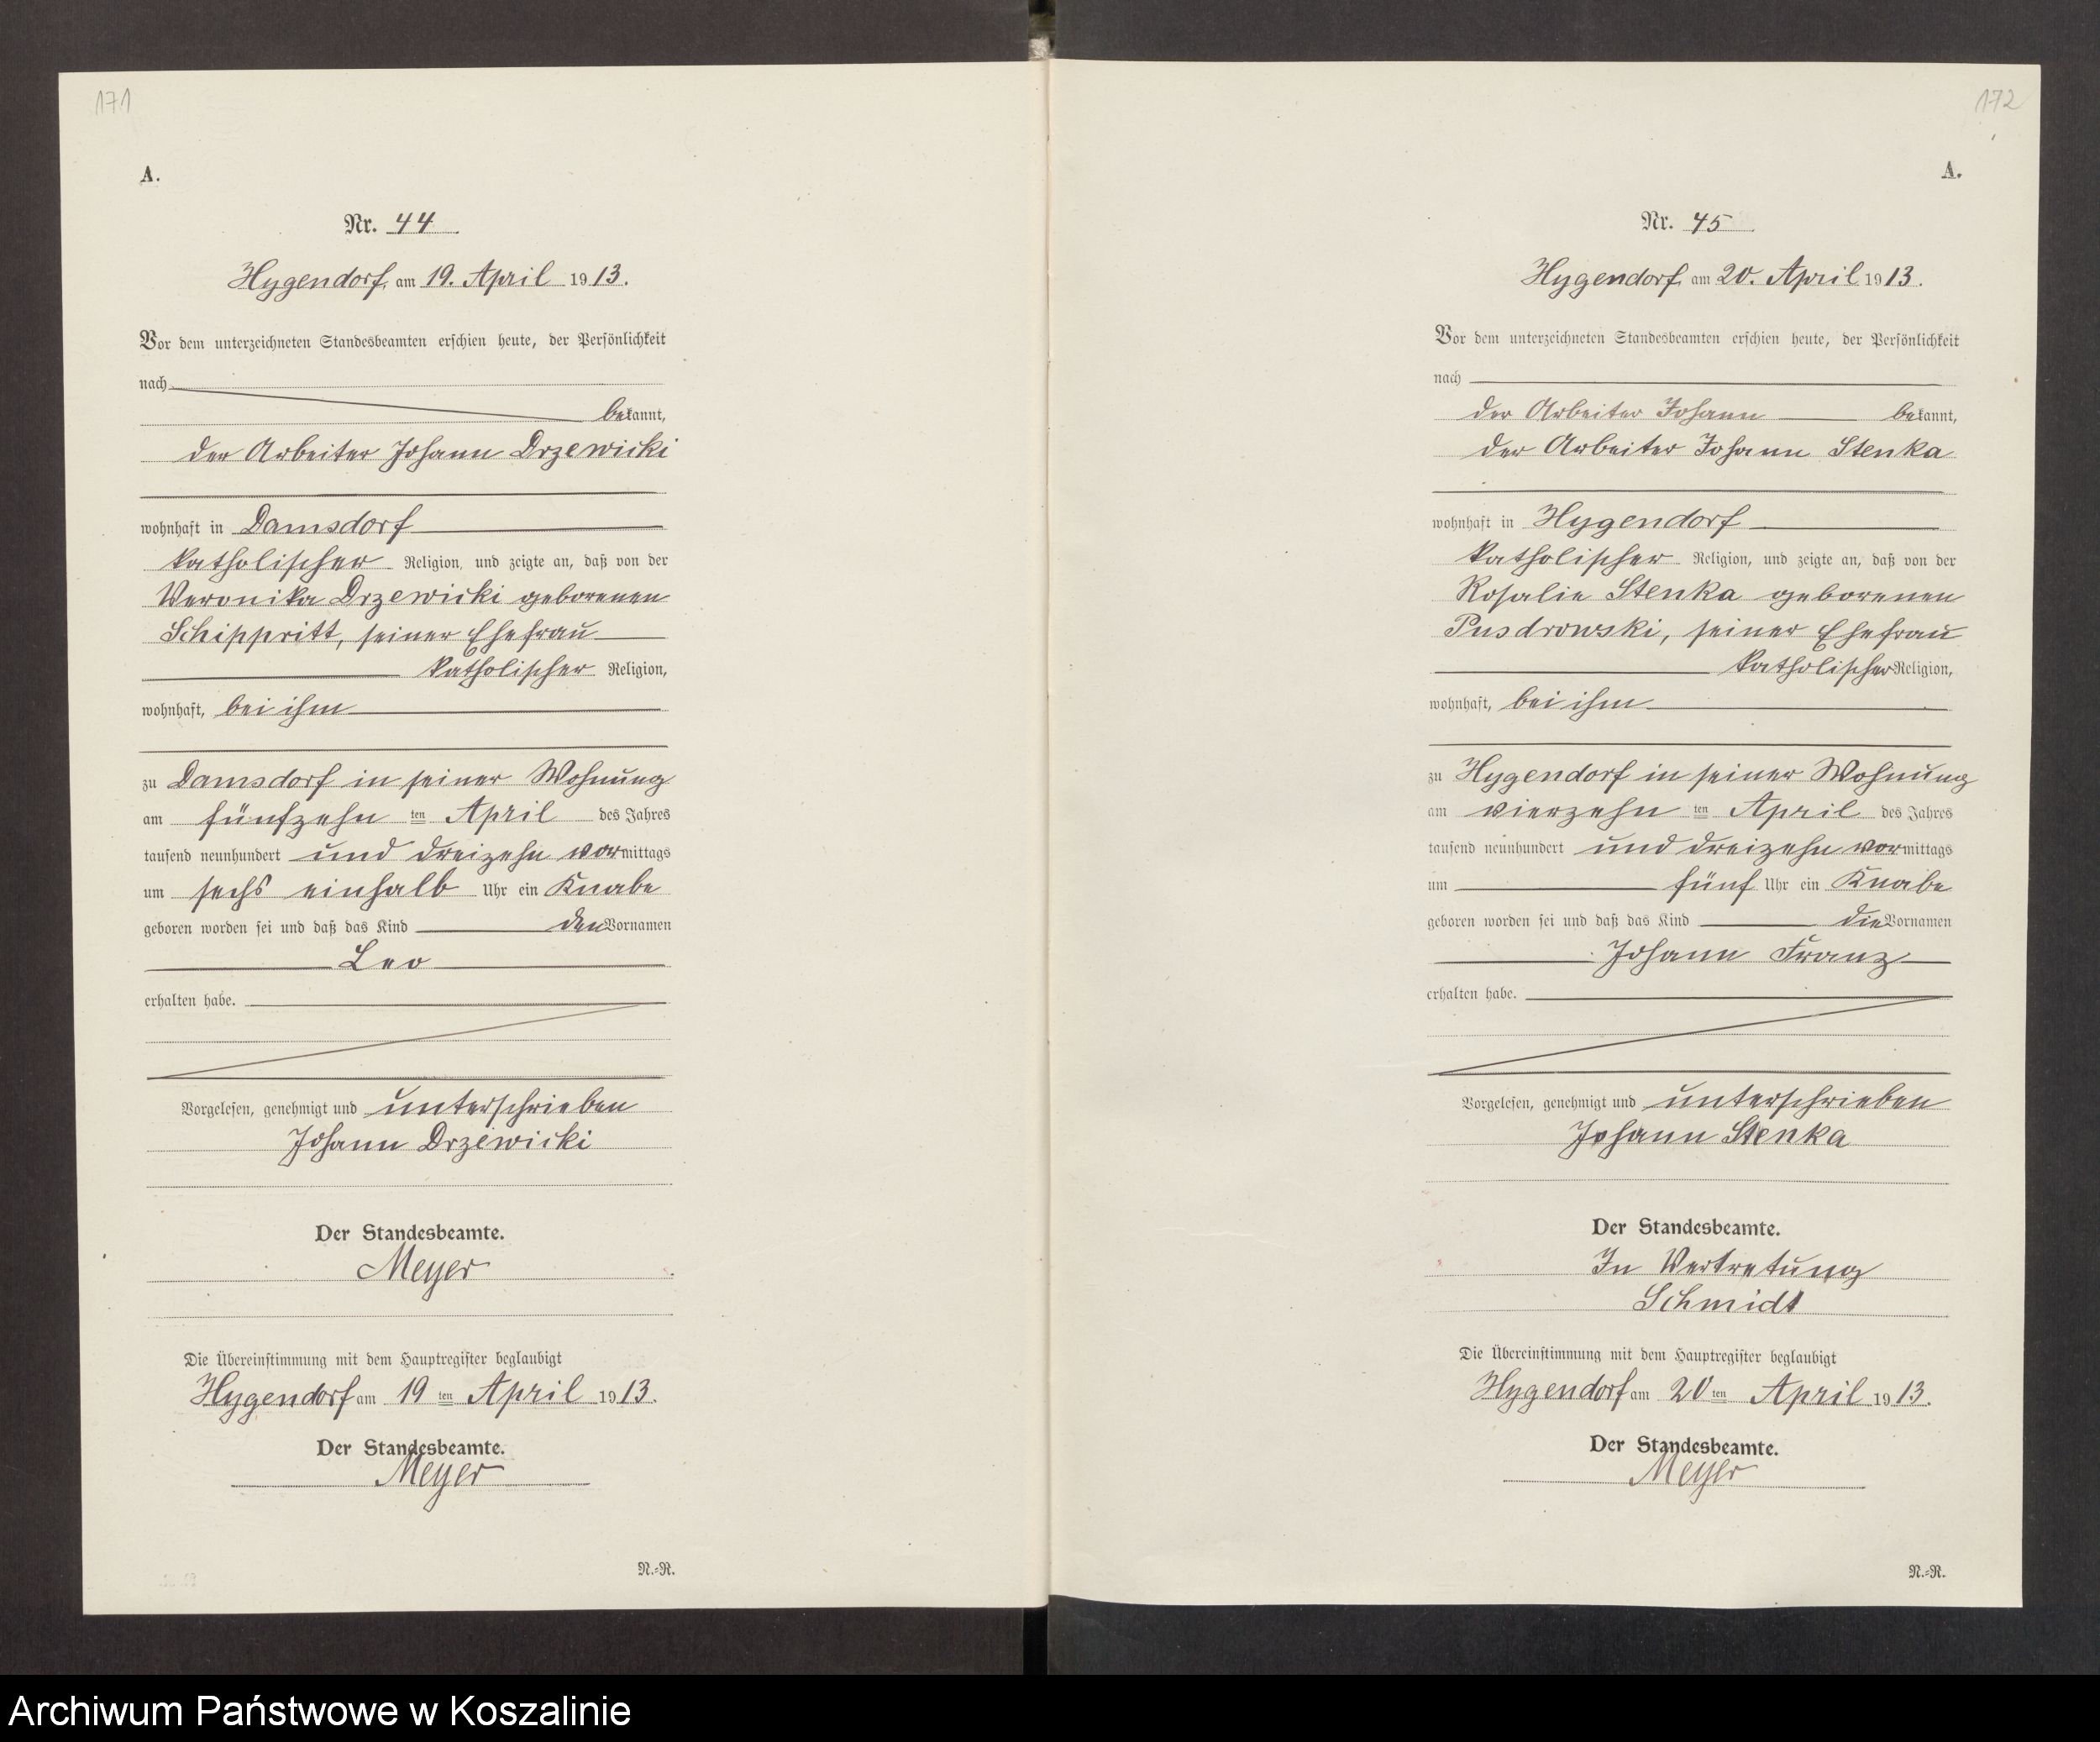 171
A.
Nr. 44
Hygendorf, am 19. April 1913.
Vor dem unterzeichneten Standesbeamten erschien heute, der Persönlichkeit
nach
bekannt,
der Arbeiter Johann Drzewicki
wohnhaft in Damsdorf
katholischer Religion, und zeigte an, daß von der
Veronika Drzewicki geborenen
Schippritt, seiner Ehefrau
katholischer Religion,
wohnhaft, bei ihm
zu Damsdorf in seiner Wohnung
am fünfzehn ten April des Jahres
tausend neunhundert und dreizehn vormittags
um sechs einhalb Uhr ein Knabe
geboren worden sei und daß das Kind den Vornamen
Leo
erhalten habe.
Vorgelesen, genehmigt und unterschrieben
Johann Drzewicki
Der Standesbeamte.
Meyer
Die Übereinstimmung mit dem Hauptregister beglaubigt
Hygendorf am 19 ten April 1913.
Der Standesbeamte.
Meyer
N.-R.
172
A.
Nr. 45
Hygendorf, am 20. April 1913.
Vor dem unterzeichneten Standesbeamten erschien heute, der Persönlichkeit
nach
der Arbeiter Johann bekannt,
der Arbeiter Johann Stenka
wohnhaft in Hygendorf
katholischer Religion, und zeigte an, daß von der
Rosalie Stenka geborenen
Pusdrowski, seiner Ehefrau
katholischer Religion,
wohnhaft, bei ihm
zu Hygendorf in seiner Wohnung
am vierzehn ten April des Jahres
tausend neunhundert und dreizehn vormittags
um fünf Uhr ein Knabe
geboren worden sei und daß das Kind die Vornamen
Johann Franz
erhalten habe.
Vorgelesen, genehmigt und unterschrieben
Johann Stenka
Der Standesbeamte.
In Vertretung
Schmidt
Die Übereinstimmung mit dem Hauptregister beglaubigt
Hygendorf am 20 ten April 1913.
Der Standesbeamte.
Meyer
N.-R.
Archiwum Państwowe w Koszalinie